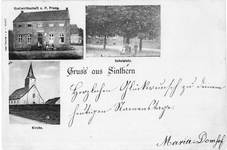 Gastwirthschaft v. P. Franz.
Schulplatz.
Gruss aus Sinthern
Kirche.
Herzlichen Glückwunsch zu deinem
heutigen Namenstage.
Maria